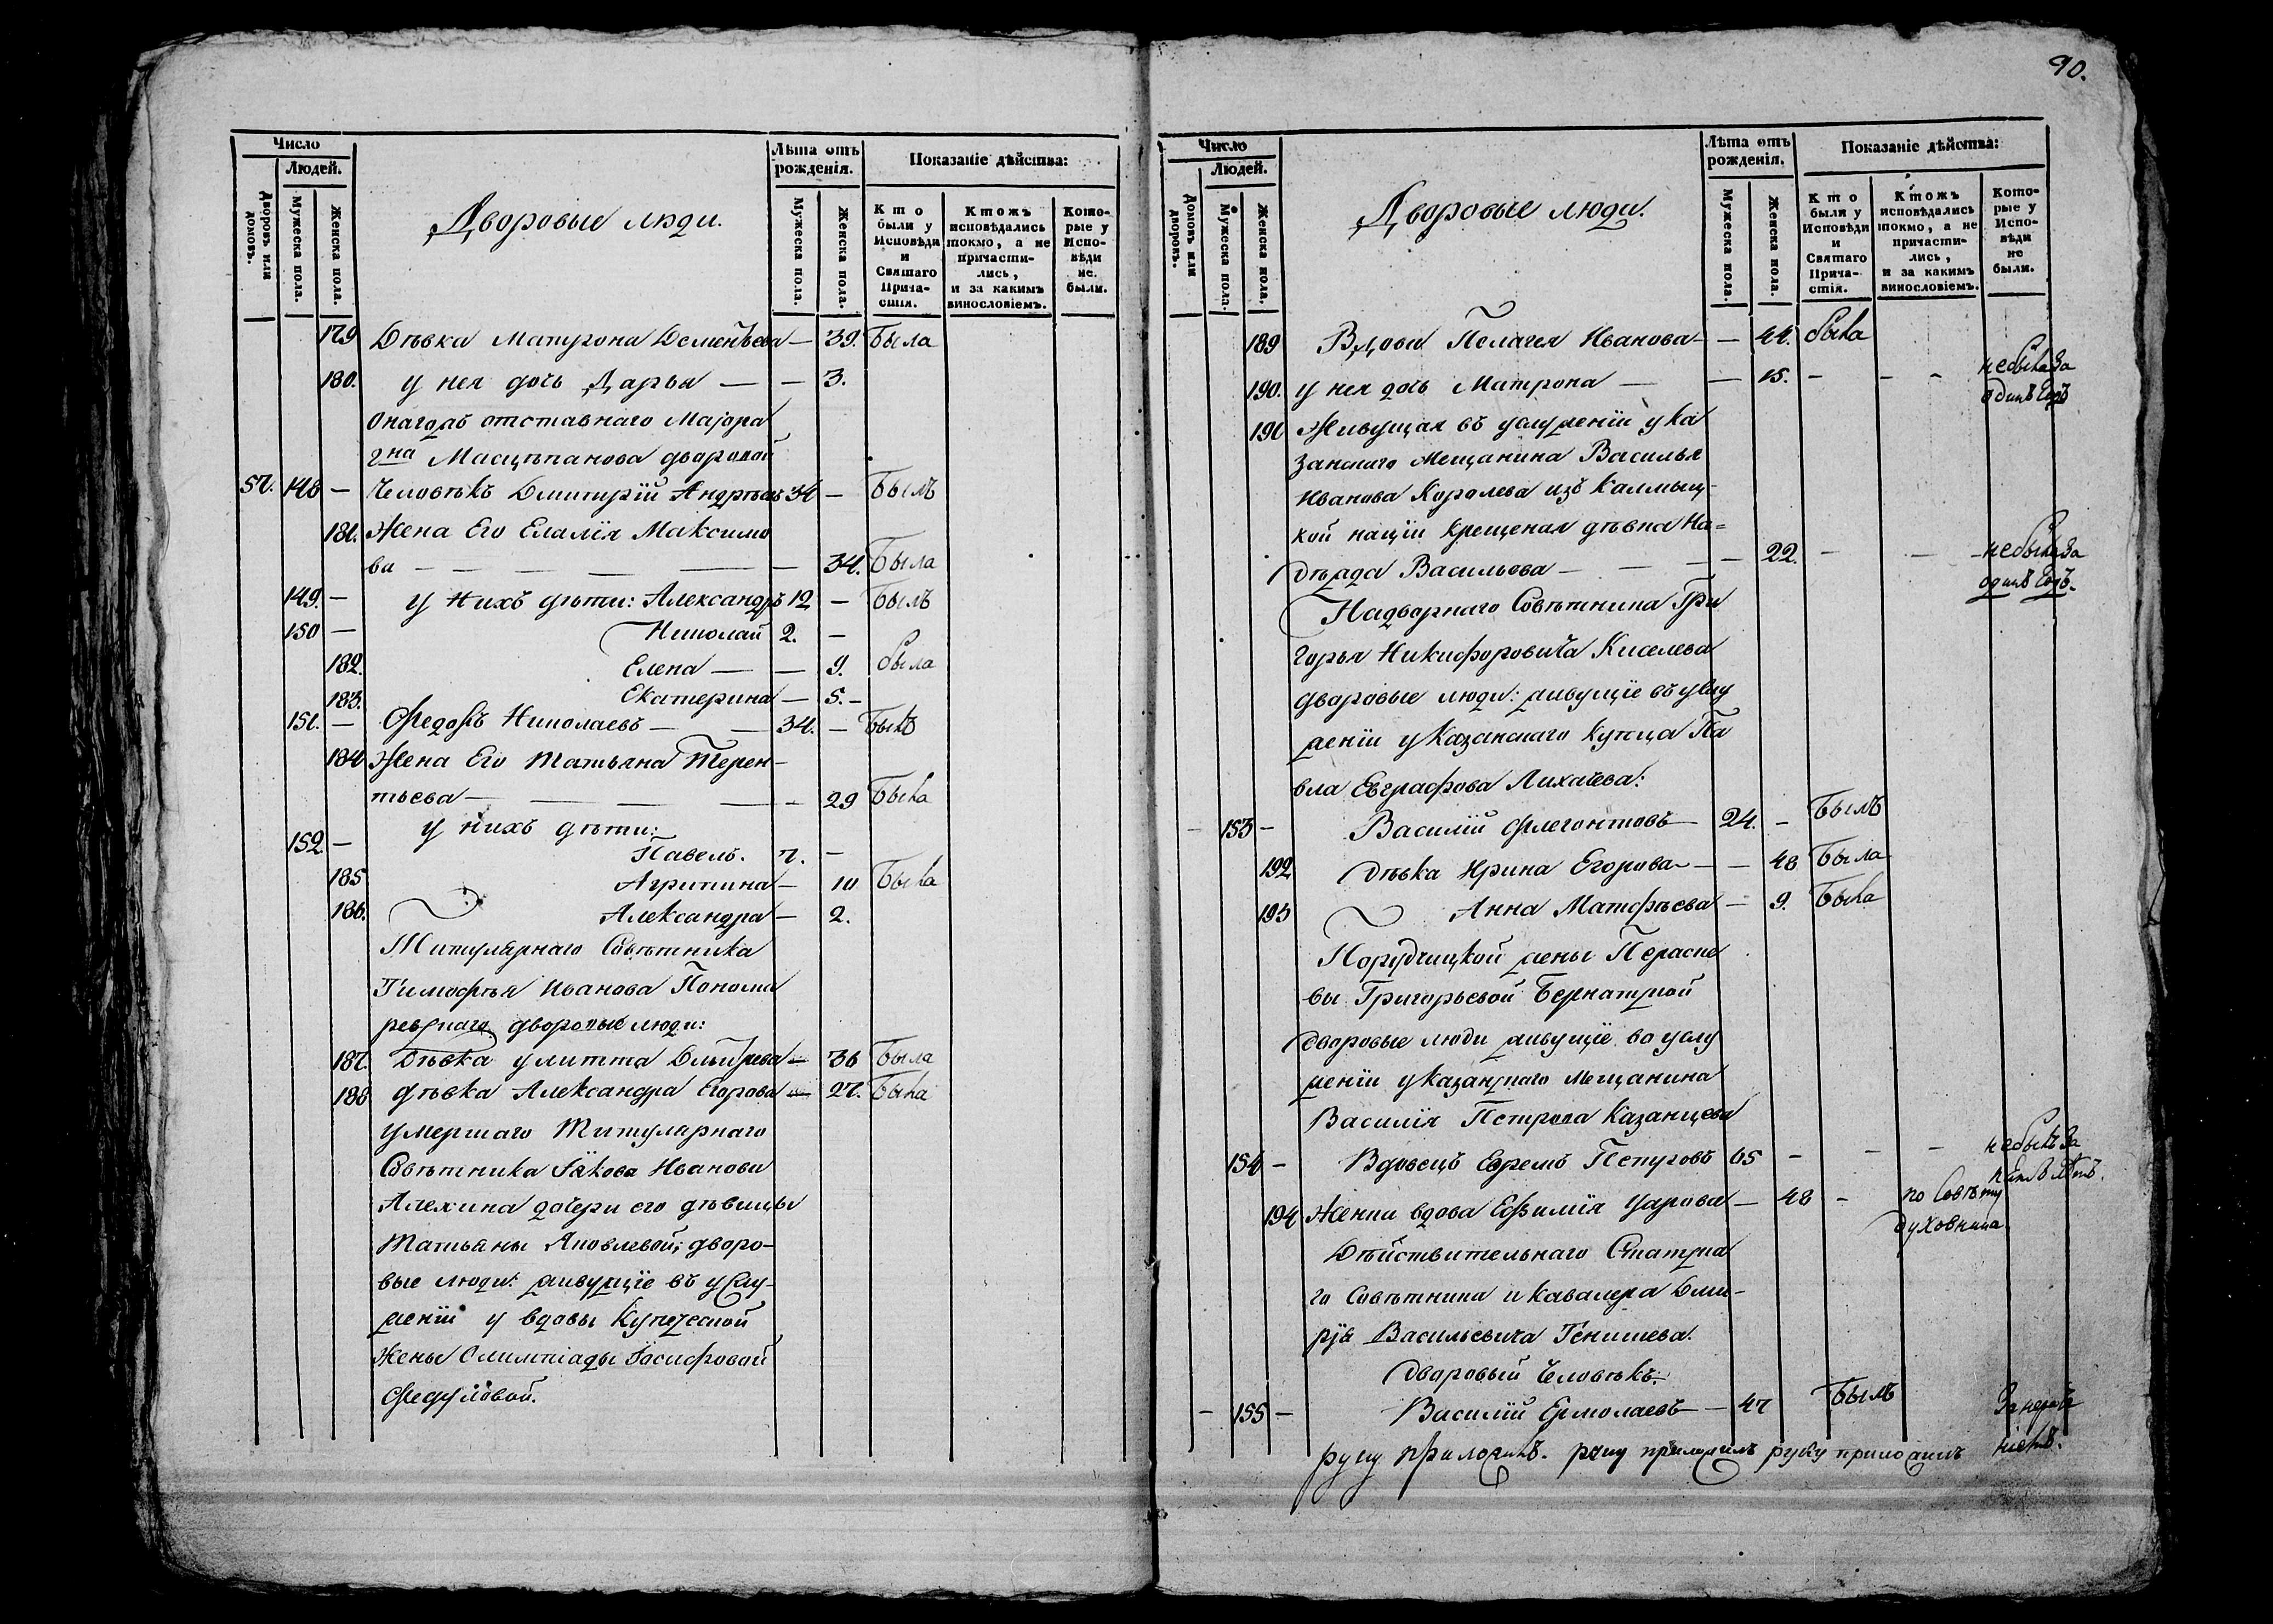 Число
Людей.
Дворовъ или домовъ.
Мужеска пола.
Женска пола.
Дворовые люди.
Лѣта отъ рожденія.
Мужеска пола.
Женска пола.
Показаніе дѣйства:
Кто были у Исповѣди и Святаго Причастія.
Ктожъ исповѣдались токмо, а не причастились, и за какимъ винословіемъ.
Которые у Исповѣди не были.
179 Дѣвка Матрона Дементьева — 39. Была
180. у нея дочь Дарья — — 3.
отставнаго Маіора
гна дворовой
57. 148 — Человѣкъ Дмитрій Андрѣевъ 34 — Былъ
181. Жена Его Елалія Максимо
ва — — — — — — 34. Была
149. — у нихъ дѣти: Александръ 12 — Былъ
150 — Николай 2. —
182. Елена — — 9. была
183. Екатерина — 5. —
151. — Федоръ Николаевъ — — 34. — Былъ
184 Жена Его Татьяна Терен-
тьева — — — — — 29 Была
у нихъ дѣти:
152. — Павелъ. 7. —
185 Агрипина — 10 Была
186. Александра — 2.
Титулярнаго Совѣтника
Тимофѣя Иванова Понома
дворовые люди:
187. Дѣвка Улитта — 36 Была
188 Дѣвка Александра Егорова — 27. Была
умершаго Титулярнаго
Совѣтника Іакова Иванова
Алехина дочери его дѣвицы
Татьяны Яковлевой, дворо-
вые люди: живущіе въ услу-
женіи у вдовы Купеческой
Жены Олимпіады Іосифовой
Федуловой.
90.
Число
Людей.
Домовъ или дворовъ.
Мужеска пола.
Женска пола.
Дворовые люди.
Лѣта отъ рожденія.
Мужеска пола.
Женска пола.
Показаніе дѣйства:
Кто были у Исповѣди и Святаго Причастія.
Ктожъ исповѣдались токмо, а не причастились, и за какимъ винословіемъ.
Которые у Исповѣди не были.
189 Вдова Пелагея Иванова — — 44. была
190. у нея дочь Матрона — — 15. — — — не была за
одинъ годъ
191 Живущая въ услуженіи у ка
занскаго Мещанина Василья
Иванова Королева изъ калмыц-
кой націи крещеная дѣвка На=
дѣжда Васильева — — — — 22. — — — не была за
одинъ годъ.
Надворнаго Совѣтника Гри
горья Никифоровича Киселева
дворовые люди: живущіе въ услу
женіи у Казанскаго купца Па
вла Евграфова Лихачева:
— 153 — Василій Флегонтовъ — 24. — Былъ
192 Дѣвка Ирина Егорова — — 48 Была
193 Анна Матфѣева — 9. Была
Поручицкой жены Параске
вы Григорьевой
дворовые люди живущіе во услу
женіи у казанскаго мещанина
Василія Петрова Казанцева
154 — Вдовецъ Ефремъ Петровъ 65 — — — не былъ за
пять лѣтъ.
194 Женки вдова Ефимія — 48 — по Совѣту
духовника
Дѣйствительнаго Статска
го Совѣтника и Кавалера Дми-
рія Васильевича Тенишева.
дворовый человѣкъ.
— 155 — Василій Ермолаевъ — 47 Былъ
руку приложилъ. руку приложилъ руку приложилъ